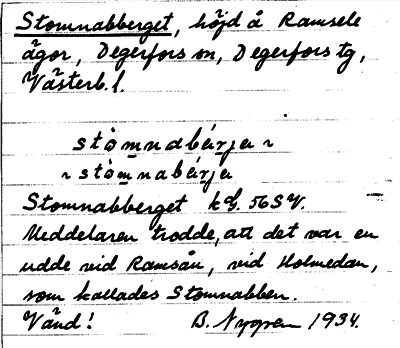 Stomnabberget, höjd å Ramsele
ägor, Degerfors sn, Degerfors tg,
Västerb. l.
stòmnabérja ~
~ stòmnabérja
Stomnabberget k bl. 56 SV.
Meddelaren trodde, att det var en
udde vid Ramsån, vid Holmedan,
som kallades Stomnabben.
Vänd! B. Nygren 1934.